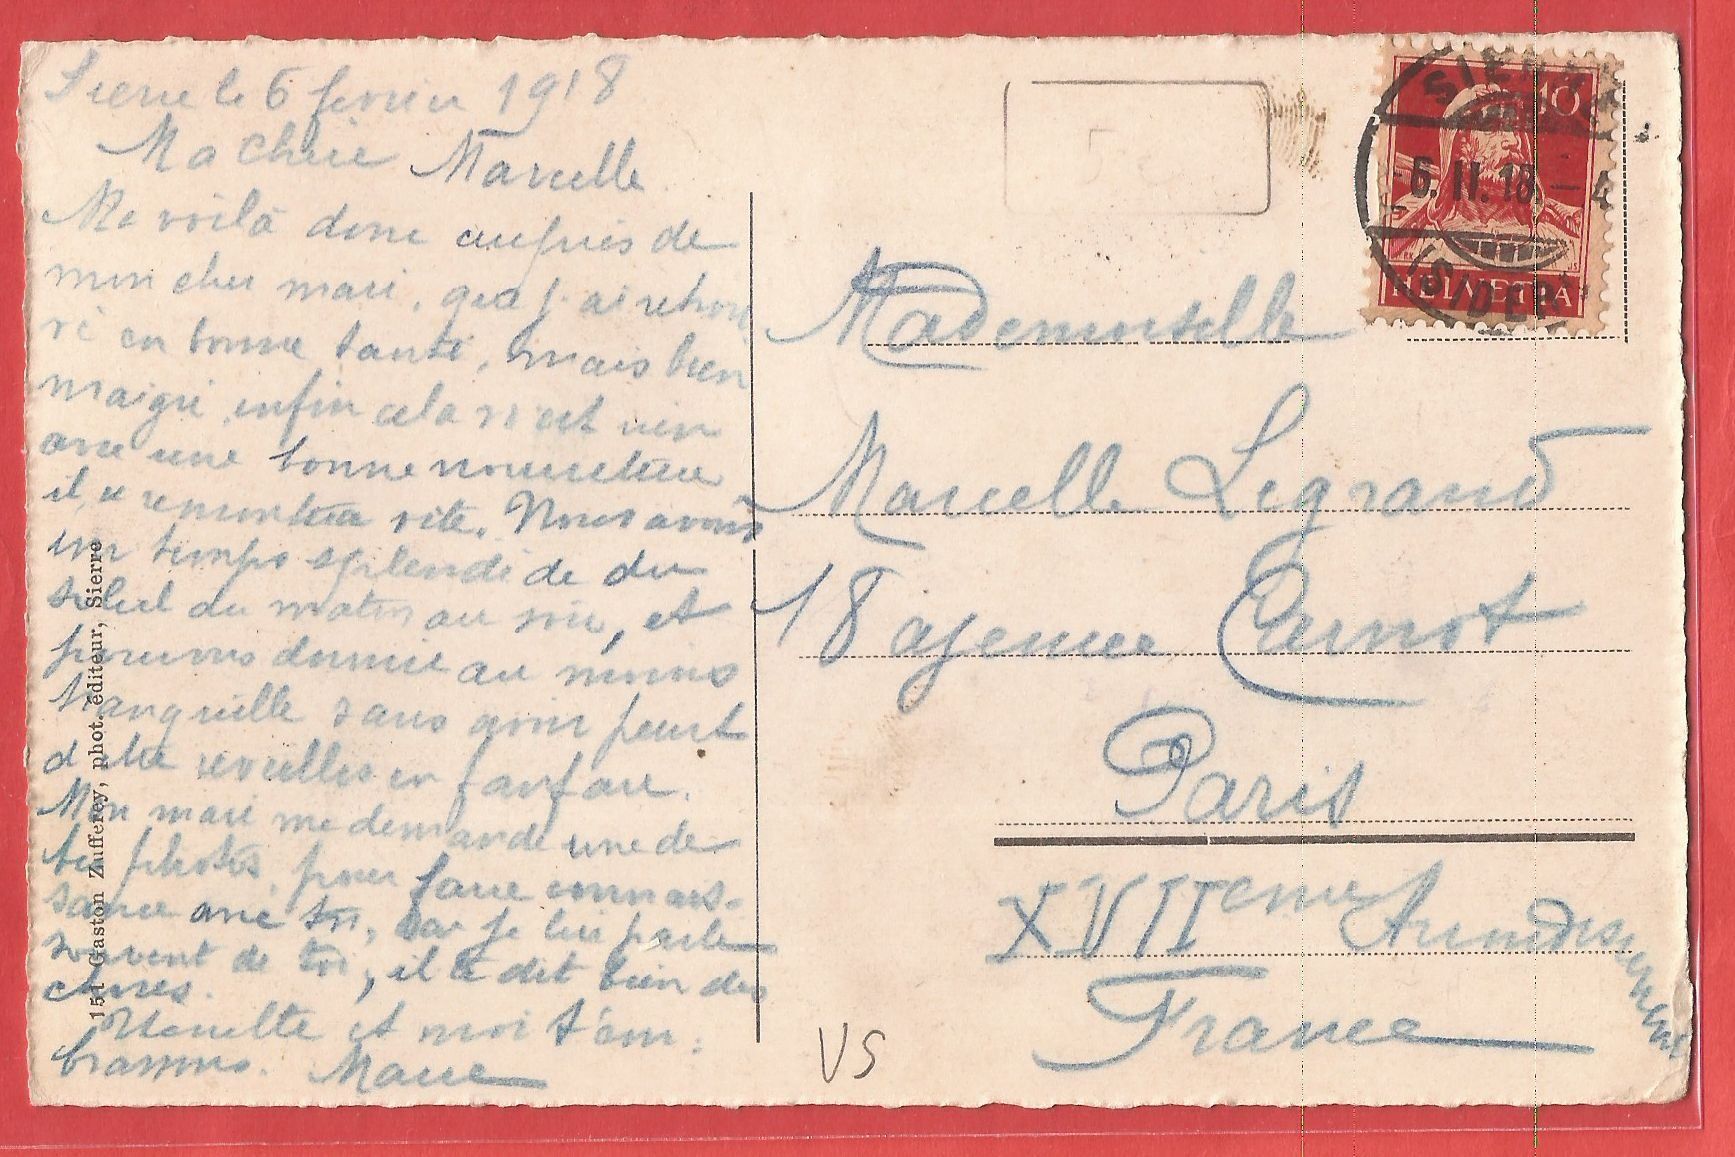 Sierre le 6 février 1918
Ma chère Marcelle
Me voilà donc auprès de
mon cher mari, que j'ai retrou
vé en bonne santé, mais bien
maigri, enfin cela n'est rien
avec une bonne nourriture
il se remontera vite. Nous avons
un temps splendide du
soleil du matin au soir, et
pouvons dormir au moins
tranquille sans avoir peur
d'être reveillés en fanfare.
Mon mari me demande une de
tes photos, pour faire connais-
sance avec toi, car je lui parle
souvent de toi, il te dit bien des
choses.
et moi t'em:
brassons. Marie
151 Gaston Zufferey, phot. éditeur, Sierre
5 c
SIERRE
-6. II. 18. - 4
(SIDERS)
10
HELVETIA
Mademoiselle
Marcelle Legrand
18 agence Carnot
Paris
XVII eme Arrondissement
France
VS